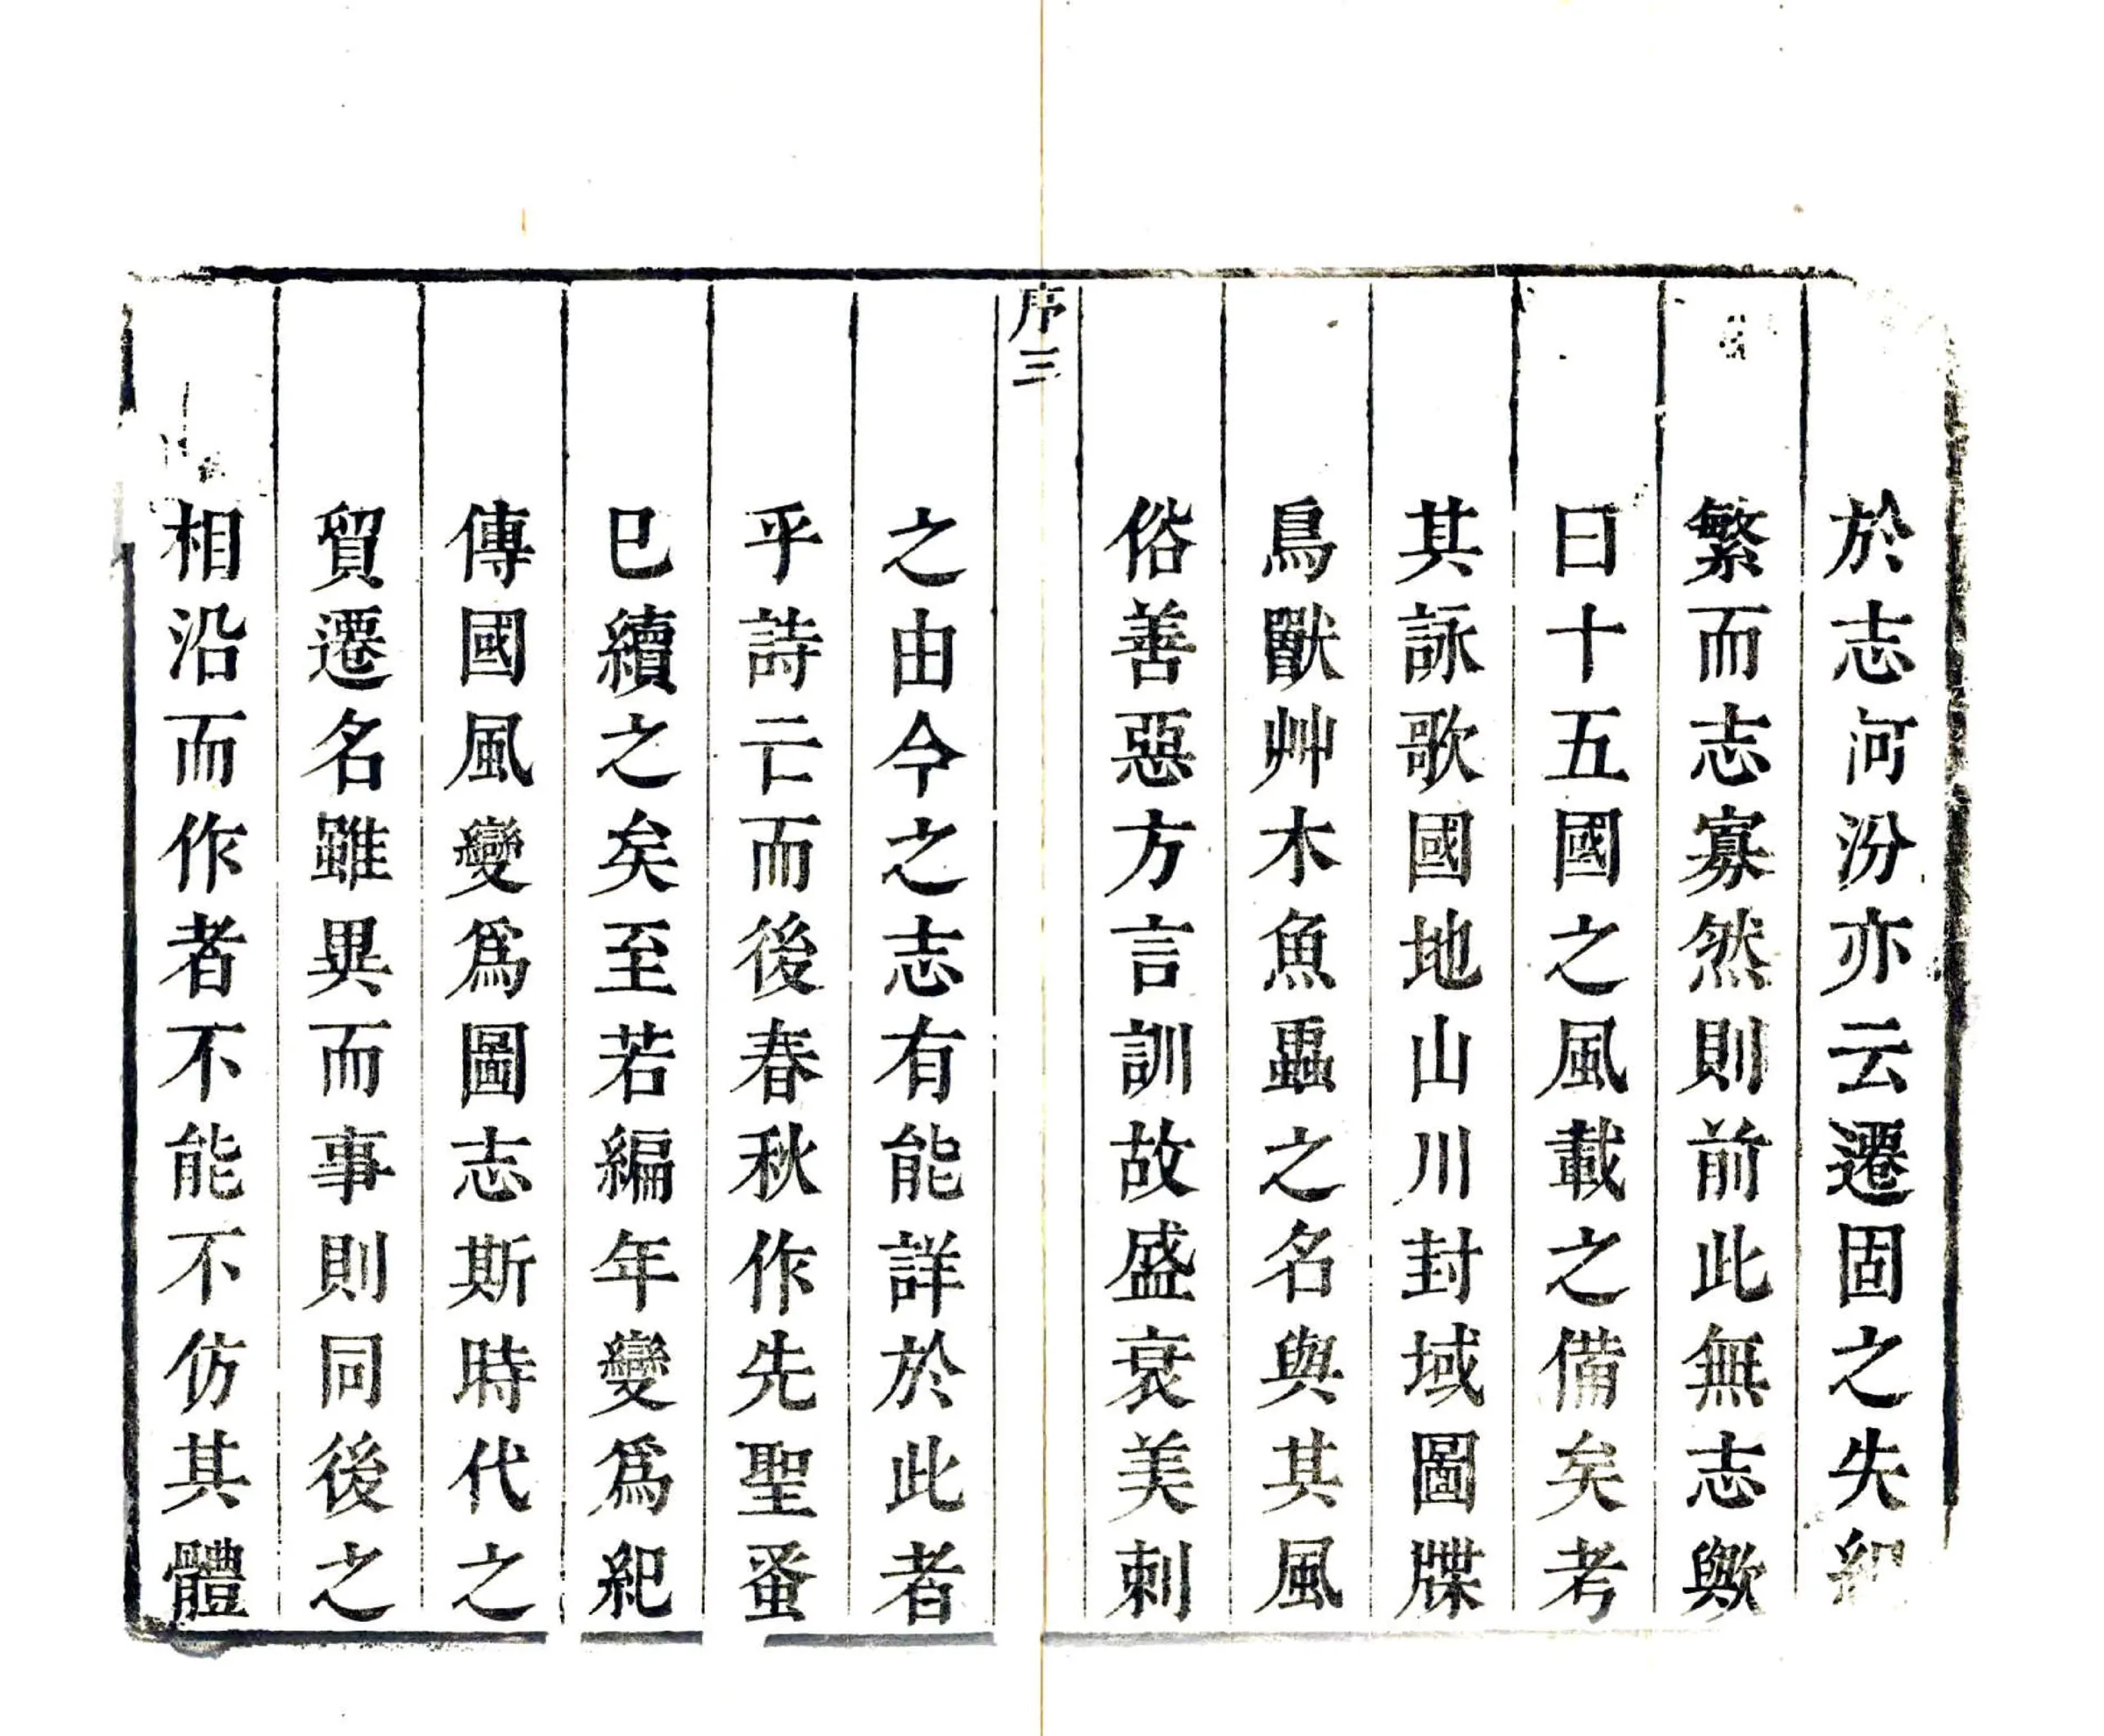 於志河汾亦云遷固之失紀
繁而志寡然則前此無志歟
曰十五國之風載之備矣考
其詠歌國地山川封域圖牒
鳥獸艸木魚蟲之名與其風
俗善惡方言訓故盛衰美刺
序三
之由今之志有能詳於此者
乎詩亡而後春秋作先聖蚤
已續之矣至若編年變為紀
傳國風變為圖志斯時代之
貿遷名雖異而事則同後之
相沿而作者不能不仿其體